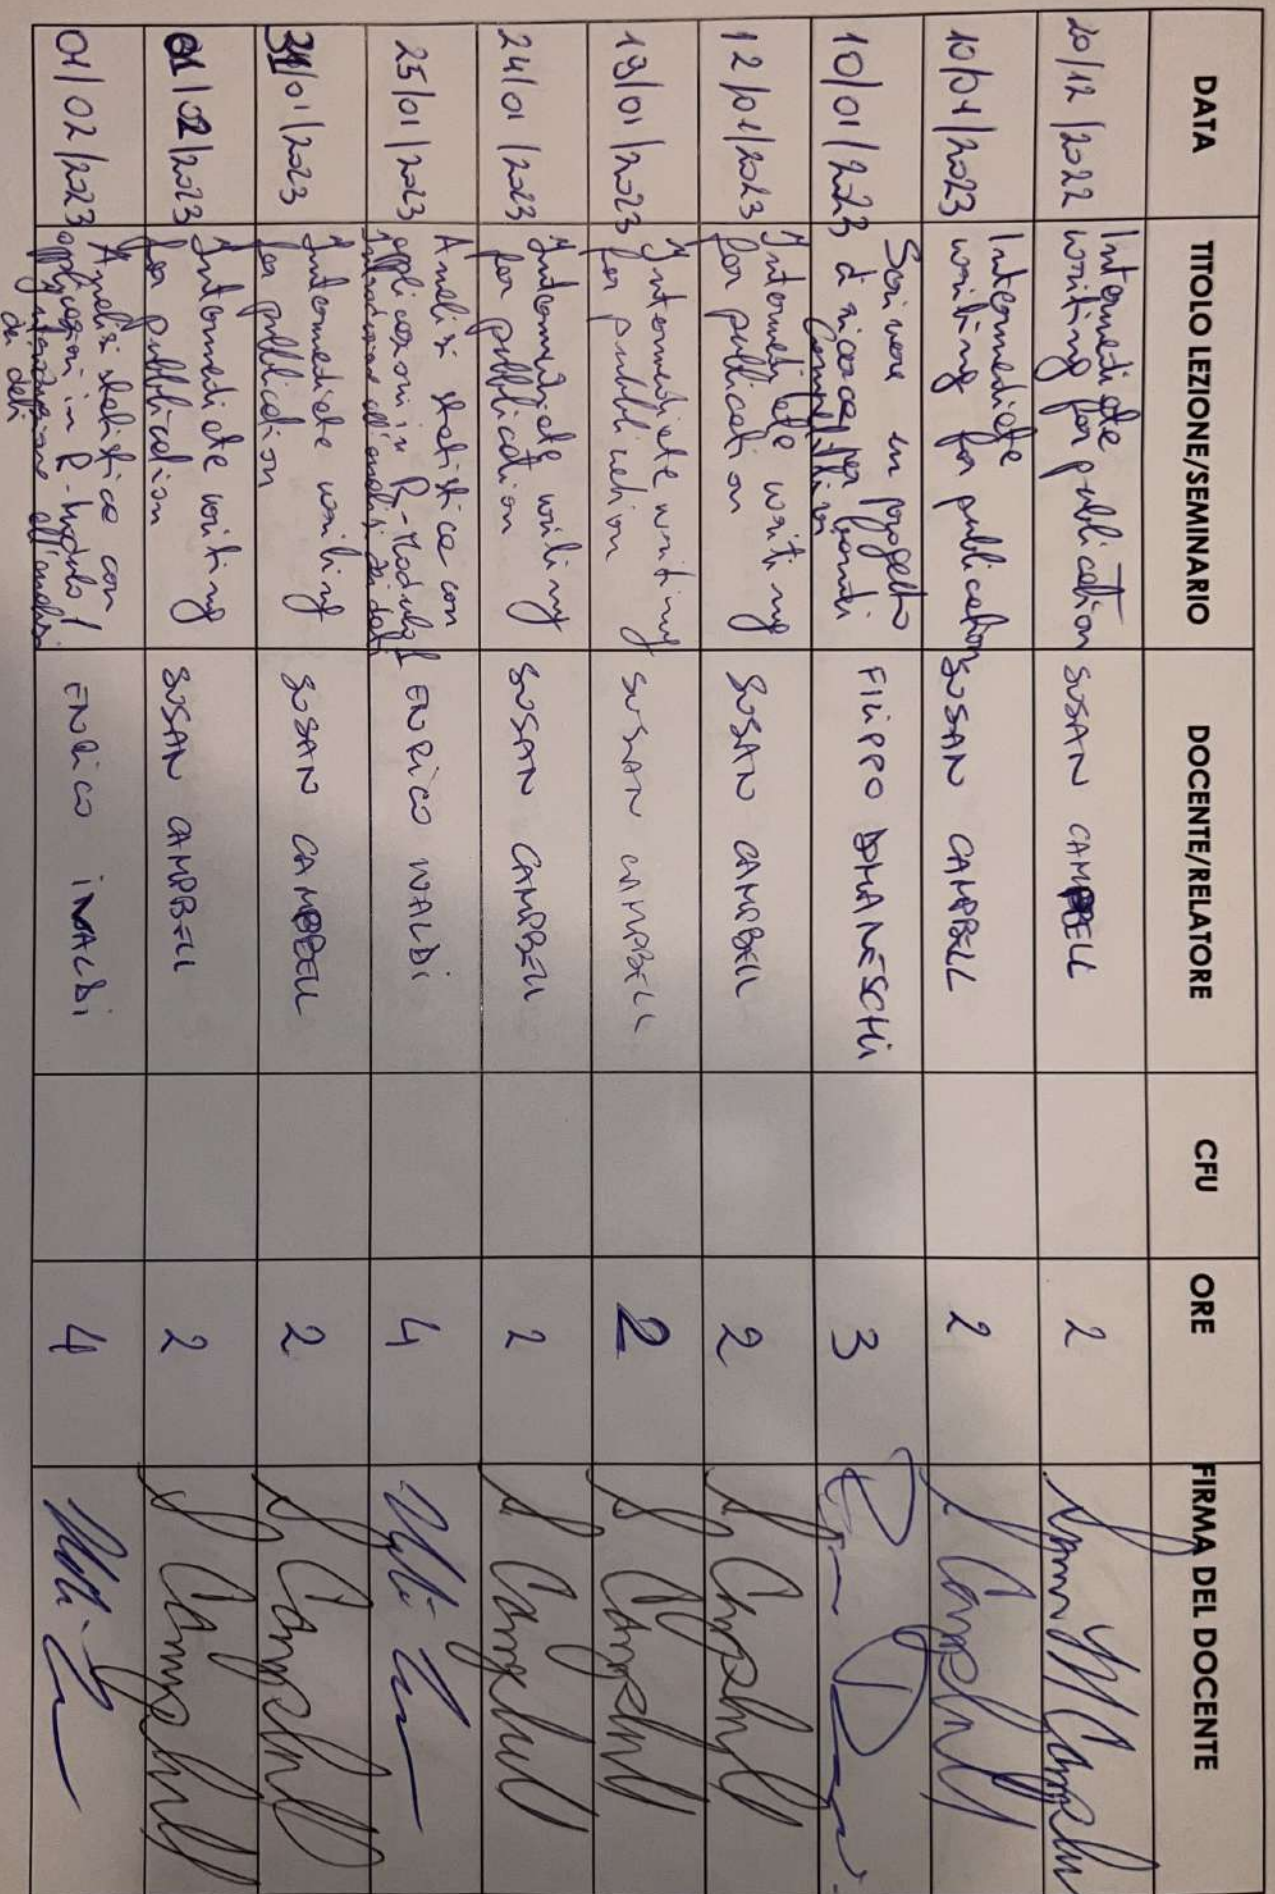 DATA TITOLO LEZIONE/SEMINARIO DOCENTE/RELATORE CFU ORE FIRMA DEL DOCENTE
20/12/2022 Intermediate writing for publication SUSAN CAMPBELL 2
10/01/2023 Intermediate writing for publication SUSAN CAMPBELL 2 S Campbell
10/01/2023 Scrivere un progetto di ricerca per bandi competitivi FILIPPO DOMANESCHI 3
12/01/2023 Intermediate writing for publication SUSAN CAMPBELL 2 S Campbell
19/01/2023 Intermediate writing for publication SUSAN CAMPBELL 2 S Campbell
24/01/2023 Intermediate writing for publication SUSAN CAMPBELL 2 S Campbell
25/01/2023 Analisi statistica con applicazioni in R - Modulo 1 Introduzione all'analisi dei dati ENRICO IVALDI 4
31/01/2023 Intermediate writing for publication SUSAN CAMPBELL 2 S Campbell
01/02/2023 Intermediate writing for publication SUSAN CAMPBELL 2 S Campbell
01/02/2023 Analisi statistica con applicazioni in R - Modulo 1 introduzione all'analisi dei dati ENRICO IVALDI 4